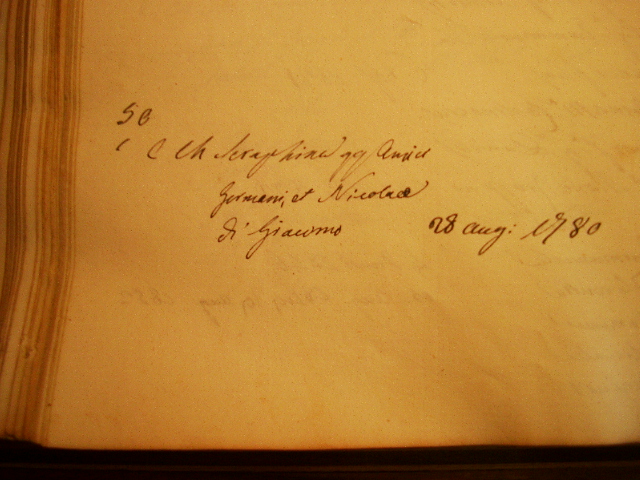 58
C Ch Seraphina qq Anni et
Germani, et Nicolaa
di Giacomo 28 aug: 1780